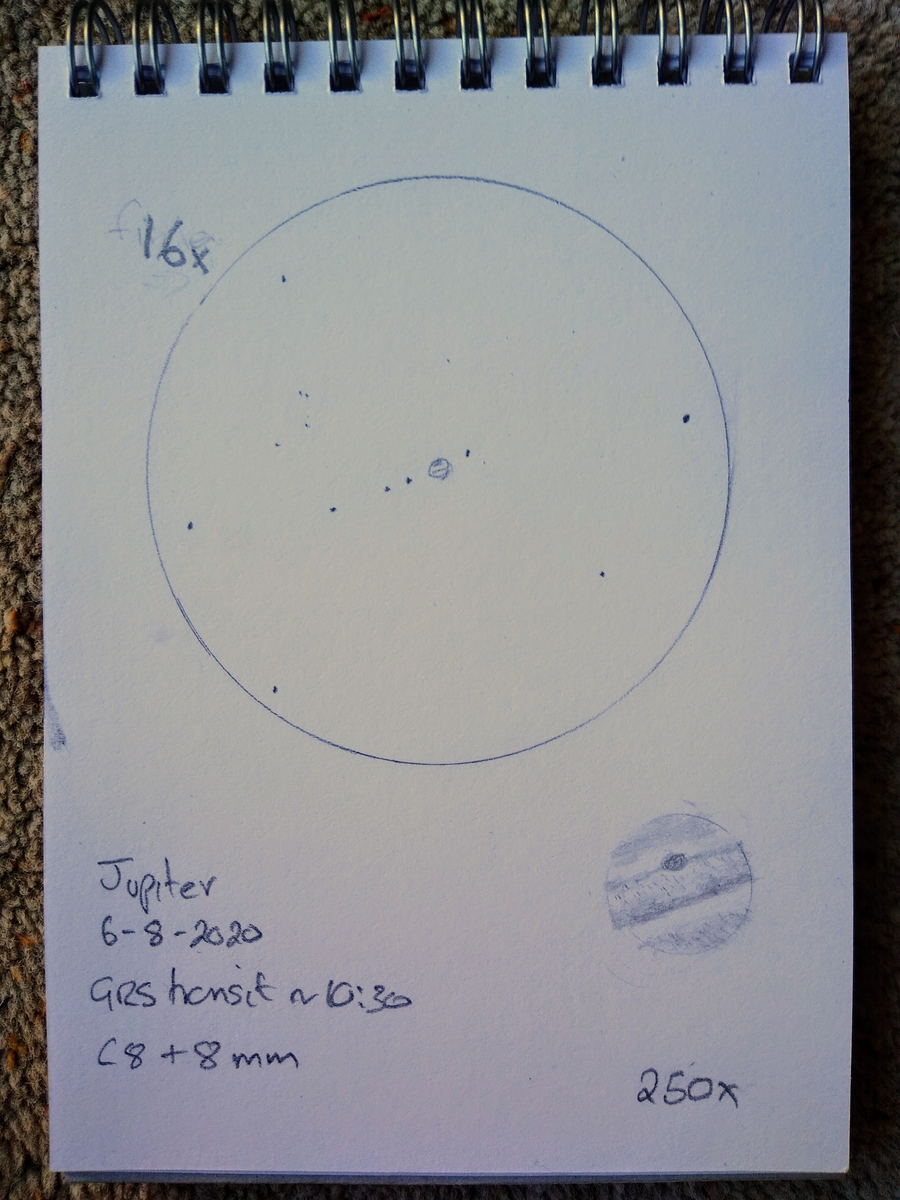 16x
Jupiter
6-8-2020
GRS transit ~ 10:30
C8 + 8mm
250x